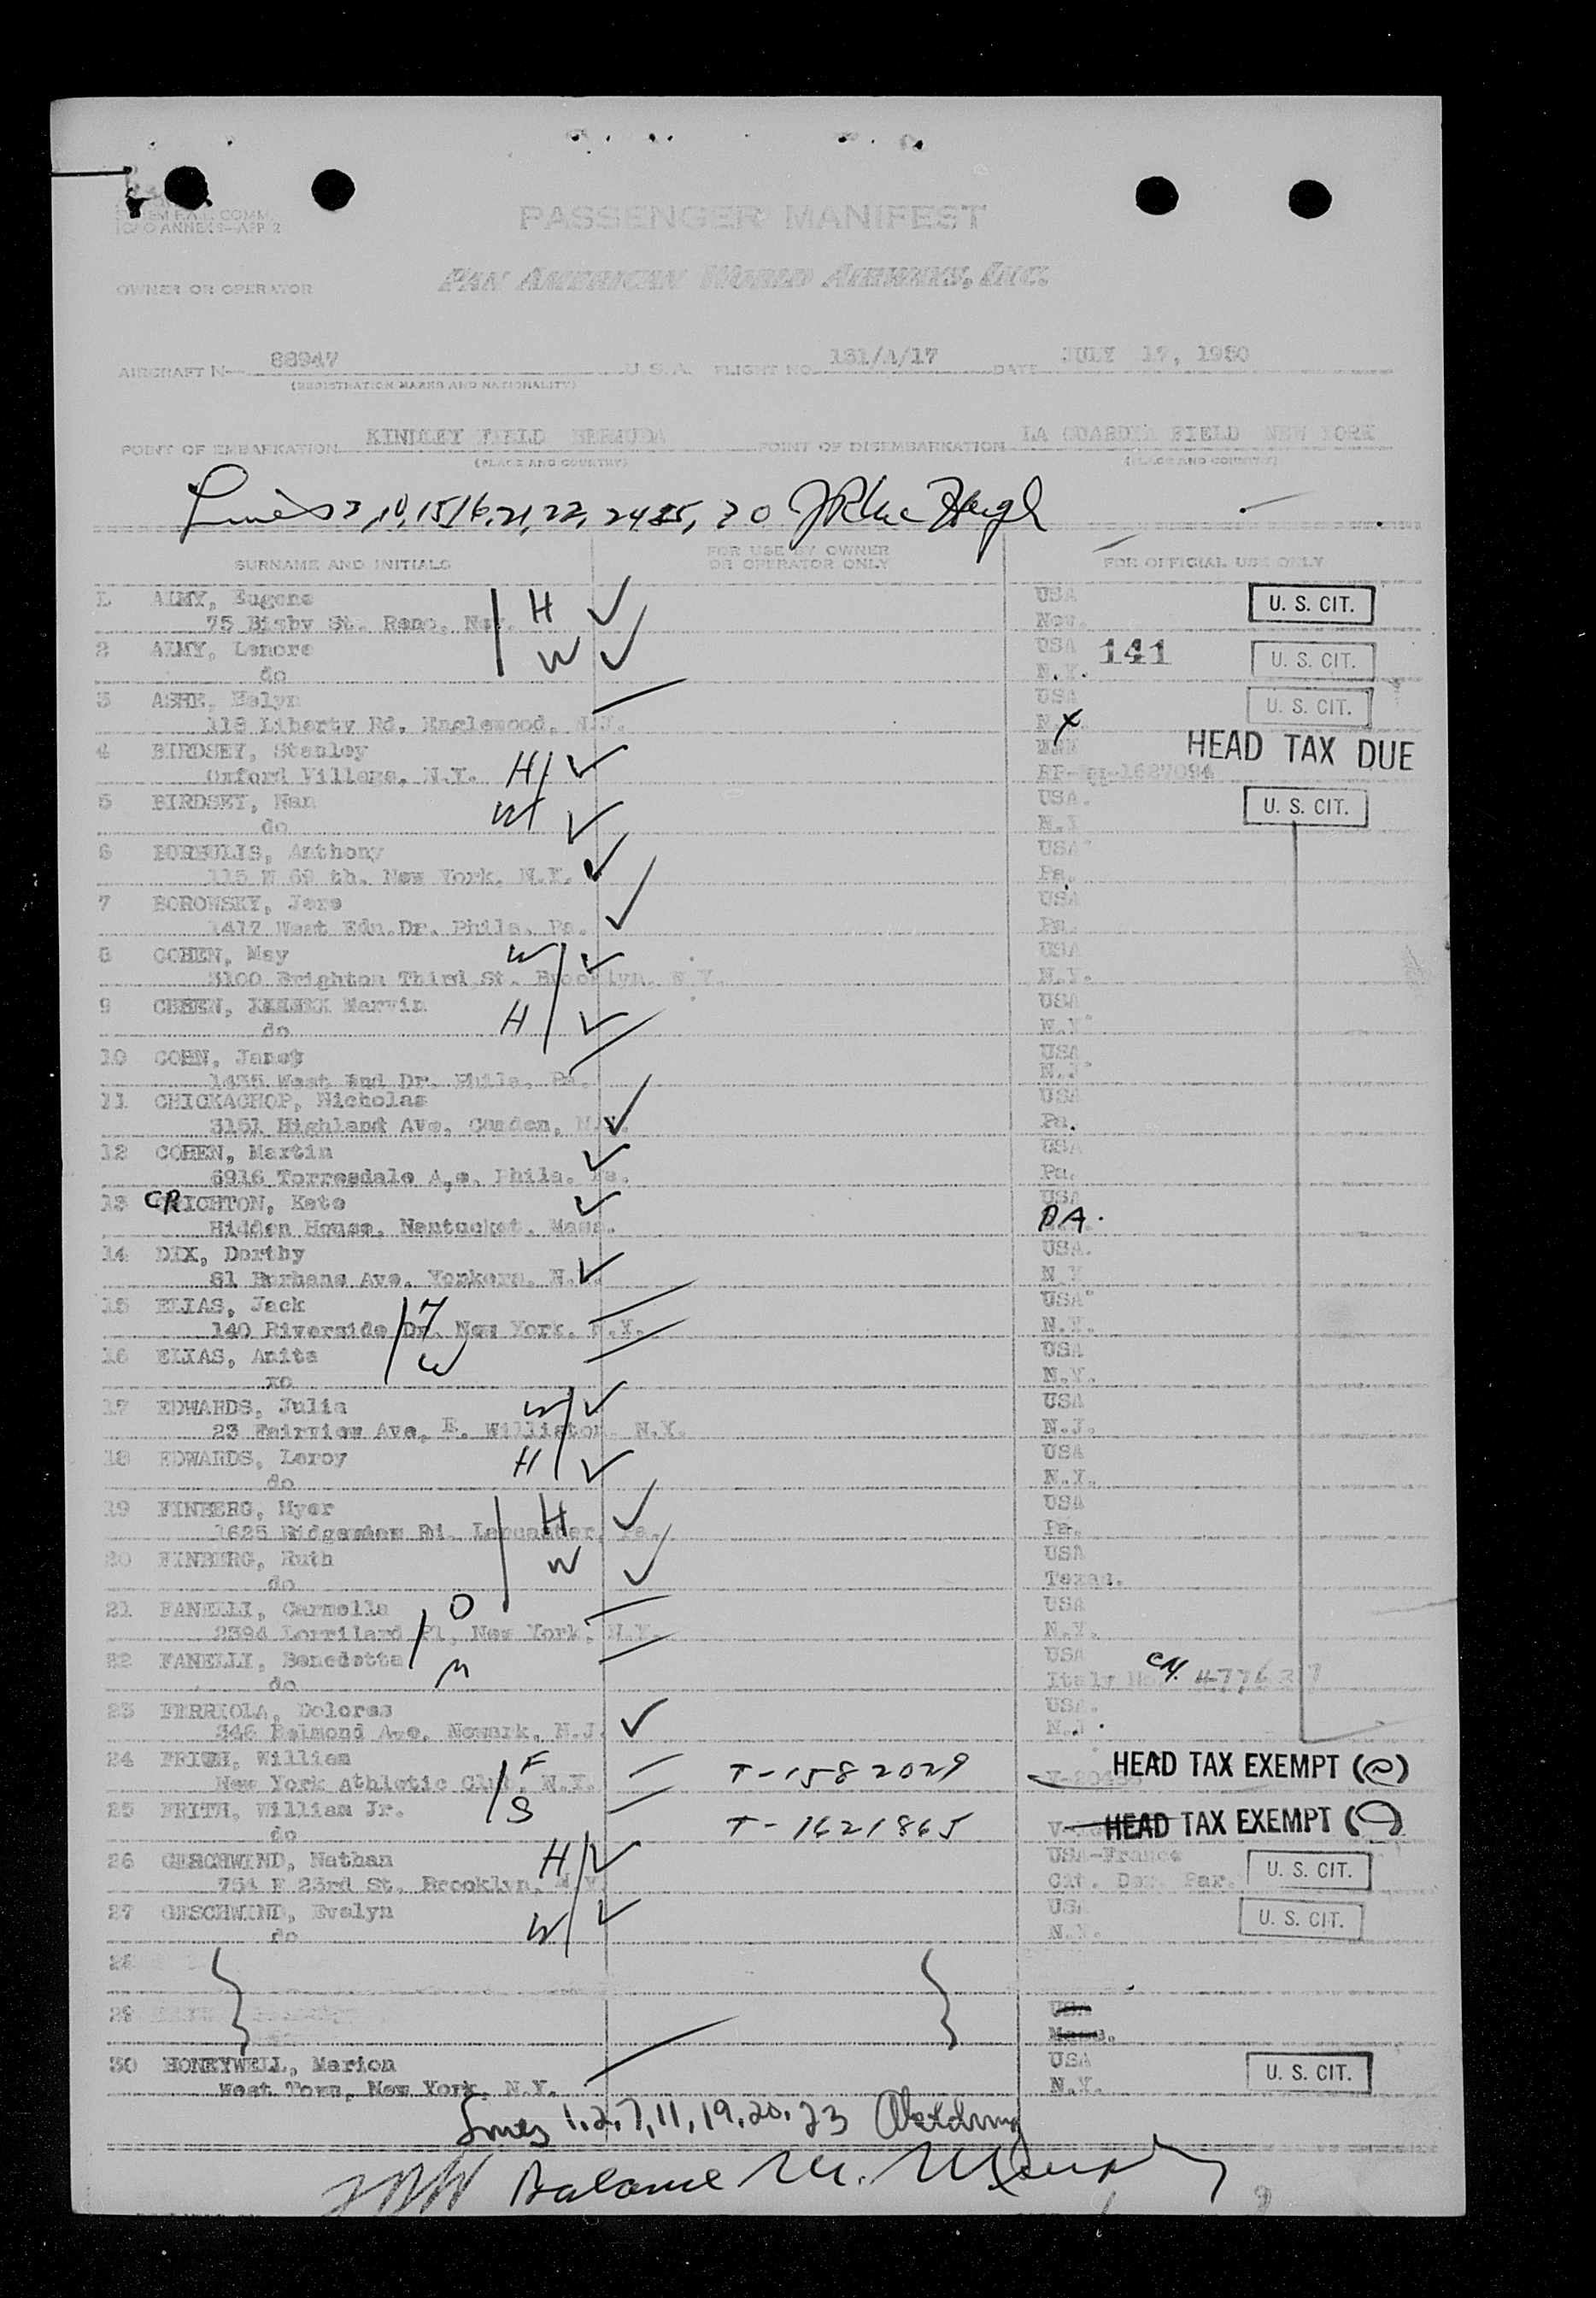 SYSTEM P.A.A. COMM.
ICAO ANNEX 9—APP 2
PASSENGER MANIFEST
OWNER OR OPERATOR PAN AMERICAN WORLD AIRWAYS, INC.
AIRCRAFT N— 88947 U.S.A. FLIGHT NO. 131/A/17 DATE JULY 17, 1950
(REGISTRATION MARKS AND NATIONALITY)
POINT OF EMBARKATION KINDLEY FIELD BERMUDA POINT OF DISEMBARKATION LA GUARDIA FIELD NEW YORK
(PLACE AND COUNTRY) (PLACE AND COUNTRY)
Lines 3, 10, 15, 16, 21, 22, 24, 25, 30
SURNAME AND INITIALS FOR USE BY OWNER OR OPERATOR ONLY FOR OFFICIAL USE ONLY
1 ALMY, Eugene H USA U. S. CIT.
75 Bigby St. Reno, Nev. Nev.
2 ALMY, Lenore W USA 141 U. S. CIT.
do N.Y.
3 ASHE, Eelyn USA U. S. CIT.
118 Liberty Rd. Englewood, N.J. X
4 BIRDSEY, Stanley H HEAD TAX DUE
Oxford Village, N.Y. 1627094
5 BIRDSEY, Nan W USA. U. S. CIT.
do
6 BORBULIS, Anthony USA
115 W 69 th. New York, N.Y. Pa.
7 BOROWSKY, Jere USA
1417 West Edn.Dr. Phila. Pa. Pa.
8 COHEN, May W USA
3100 Brighton Third St. Brooklyn, N.Y. N.Y.
9 Marvin H USA
do N.Y.
10 COHN, Janet USA
1435 West End Dr. Phila. Pa. N.J.
11 CHICKACHOP, Nicholas USA
3151 Highland Ave. Camden, N.J. Pa.
12 COHEN, Martin USA
6916 Torresdale A,e. Phila. Pa. Pa.
13 CRICHTON, Kate USA
Hidden House, Nantucket, Mass. PA.
14 DIX, Dorthy USA.
81 Burhans Ave. Yonkers, N.Y. N.Y
15 ELIAS, Jack H USA
140 Riverside Dr. New York, N.Y. N.Y.
16 ELIAS, Anita W USA
do N.Y.
17 EDWARDS, Julia W USA
23 Fairview Ave, E. Williston, N.Y. N.J.
18 EDWARDS, Leroy H USA
do N.Y.
19 FINBERG, Myer H USA
1625 Ridgeview Rd. Lancaster, Pa. Pa.
20 FINBERG, Ruth W USA
do Texas.
21 FANELLI, Carmella D USA
2394 Lorrilard Pl, New York, N.Y. N.Y.
22 FANELLI, Benedetta M USA
do Italy No.
23 FERRIOLA, Dolores USA.
346 Belmond Ave. Newark, N.J. N.J.
24 FRITH, William F T-1582029 HEAD TAX EXEMPT (e)
New York Athletic Club, N.Y.
25 FRITH, William Jr. S T-1621865 HEAD TAX EXEMPT
do
26 GESCHWIND, Nathan H USA-France U. S. CIT.
751 E 23rd St. Brooklyn, N.Y. Cit. Par.
27 GESCHWIND, Evelyn W USA U. S. CIT.
do N.Y.
28
29 USA
Mass.
30 HONEYWELL, Marion USA U. S. CIT.
West Town, New York, N.Y. N.Y.
Lines 1, 2, 7, 11, 19, 20, 23
Balance M.